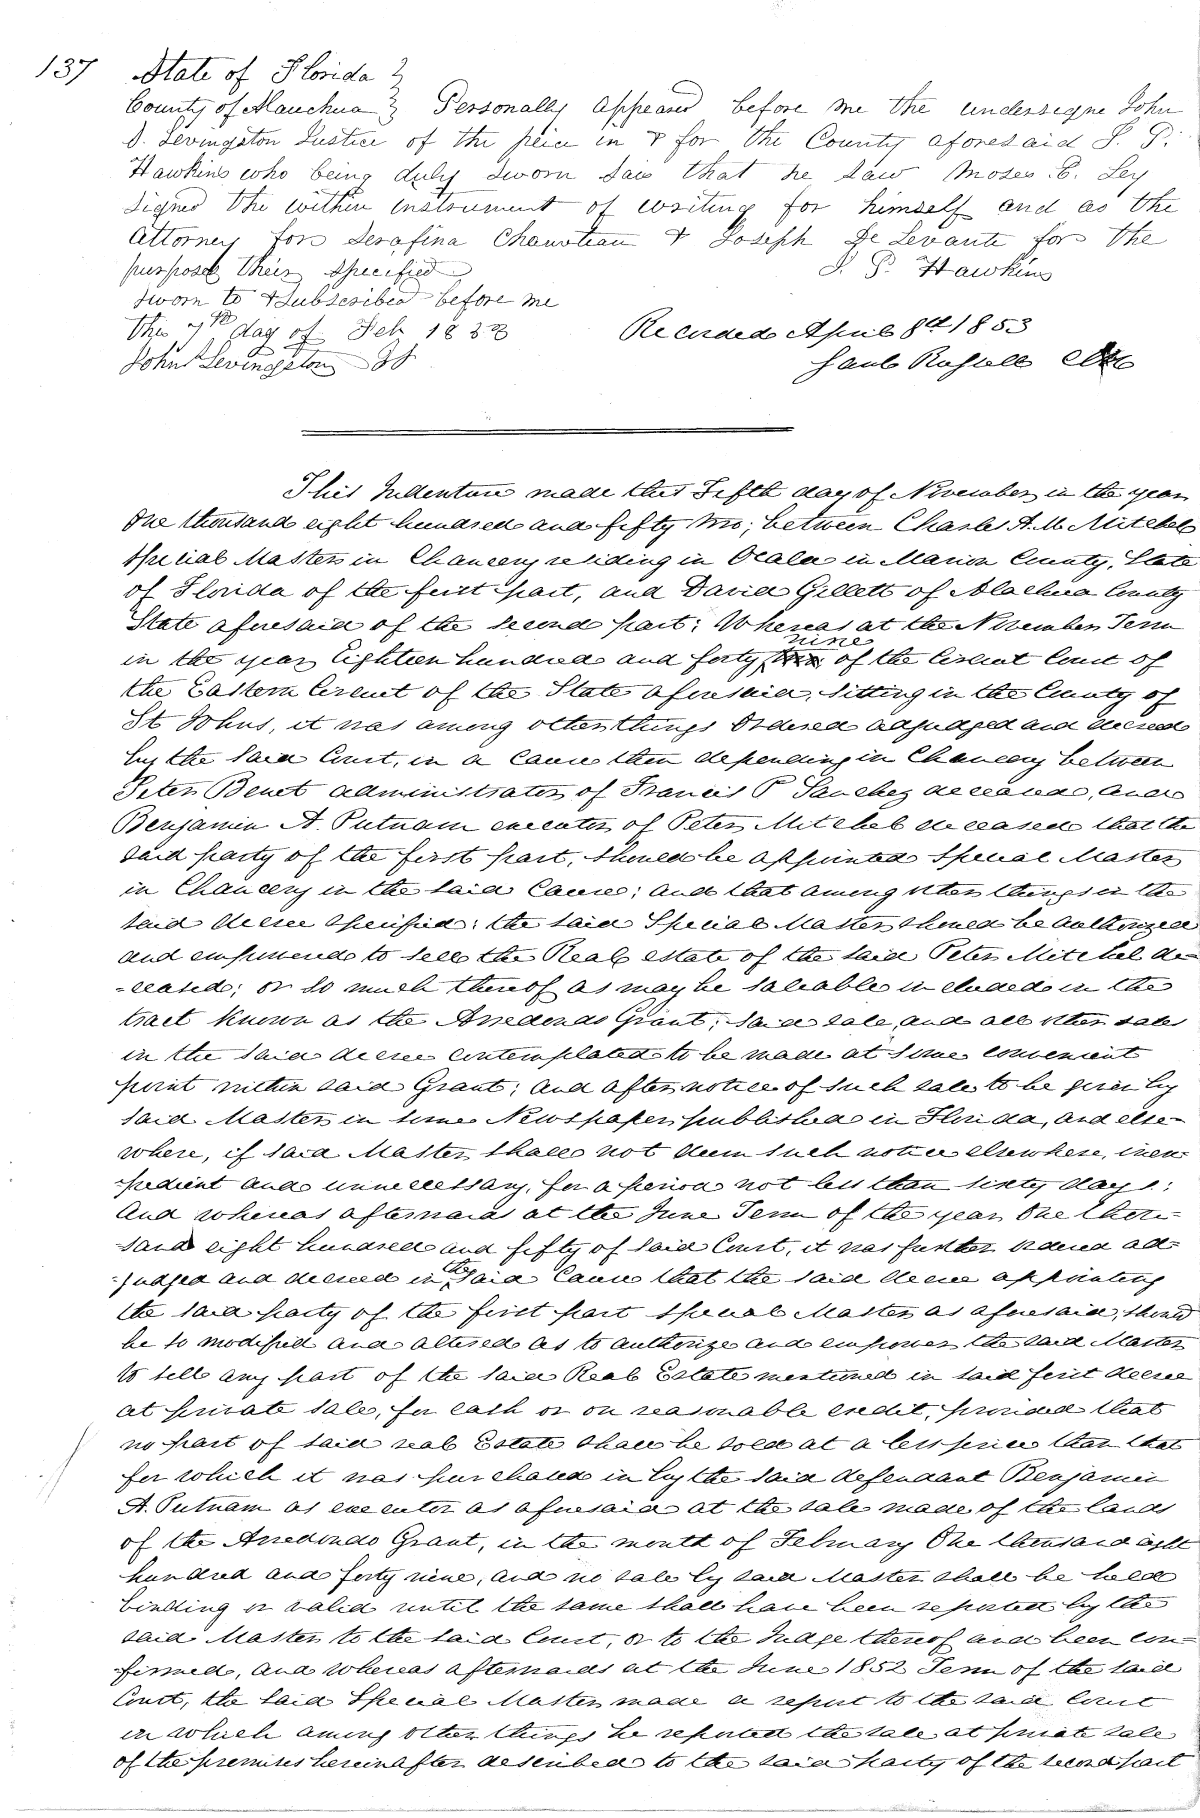 137 State of Florida }
County of Alauchua } Personally appeared before me the undersigne John
D. Levingston Justice of the peice in & for the County aforesaid S. P.
Hawkins who being duly sworn sais that he saw Moses E. Ley
signed the within instrument of writing for himself and as the
attorney for Serafina Chauvteau & Joseph De Levante for the
purposes their specified S. P. Hawkins
Sworn to & Subscribed before me
this 7th day of Feb 1853 Recorded April 8th 1853
John Levingston JP Saml Russell Clk
This Indenture made this Fifth day of November in the year
One thousand eight hundred and fifty two; between Charles A. M Mitchel
Special Master in Chancery residing in Ocala in Marion County, State
of Florida of the first part, and David Gillett of Alachua County
State aforesaid of the second part; Whereas at the November Term
in the year Eighteen hundred and forty nine of the Circuit Court of
the Eastern Circuit of the State aforesaid, sitting in the County of
St Johns, it was among other things Ordered adjudged and decreed
by the said Court, in a cause then depending in Chancery between
Peter Benet administrator of Francis P Sanchez deceased, and
Benjamin A. Putnam executor of Peter Mitchel deceased that the
said party of the first part, should be appointed Special Master
in Chancery in the said Cause; and that among other things in the
said decree specified; the said Special Master should be authorized
and empowered to sell the Real estate of the said Peter Mitchel de=
=ceased; or so much thereof as may be saleable included in the
tract known as the Arredondo Grant; said sale, and all other sales
in the said decree contemplated to be made at some convenient
point within said Grant; and after notice of such sale to be given by
said Master in some Newspaper published in Florida, and else=
where, if said Master shall not deem such notice elsewhere, inex=
pedient and unnecessary, for a period not less than sixty days;
And whereas afterwards at the June Term of the year One thou=
=sand eight hundred and fifty of said Court, it was further ordered ad=
=judged and decreed in the said Cause that the said decree appointing
the said party of the first part Special Master as aforesaid, should
be so modified and altered as to authorize and empower the said Master
to sell any part of the said Real Estate mentioned in said first decree
at private sale, for cash or on reasonable credit, provided that
no part of said real Estate shall be sold at a less price than that
for which it was purchased in by the said defendant Benjamin
A. Putnam as executor as aforesaid at the sale made of the lands
of the Arredondo Grant, in the month of February One thousand eight
hundred and forty nine, and no sale by said Master shall be held
binding or valid until the same shall have been reported by the
said Master to the said Court, or to the Judge thereof and been con=
firmed, and whereas afterwards at the June 1852 Term of the said
Court, the said Special Master made a report to the said Court
in which among other things he reported the sale at private sale
of the premises hereinafter described to the said party of the second part